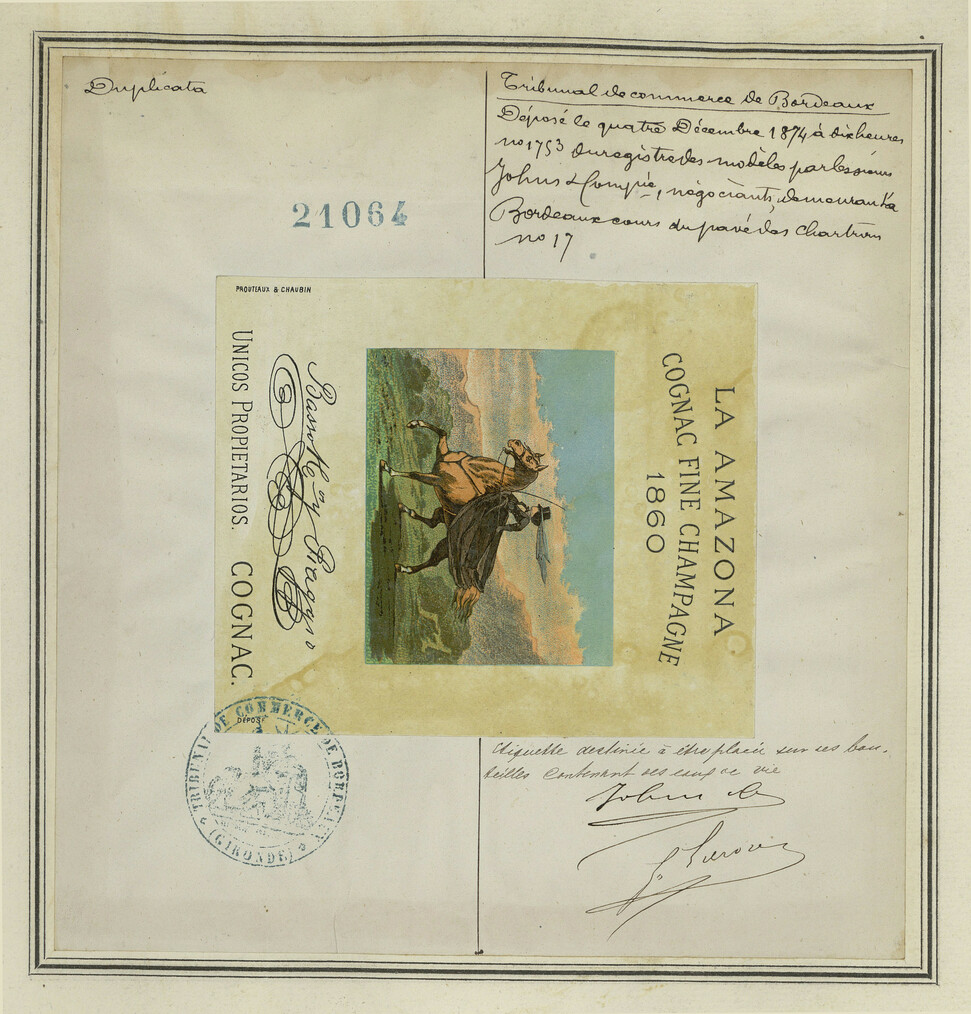 Duplicata
Tribunal de commerce de Bordeaux
Déposé le quatre Décembre 1874 à dix heures
no 1753 du registre des modèles par les sieurs
Johns & Compie, négociants, demeurant à
Bordeaux cours du pavé des Chartrons
no 17
21064
PROUTEAUX & CHAUBIN
LA AMAZONA
COGNAC FINE CHAMPAGNE
1860
UNICOS PROPIETARIOS. COGNAC.
DÉPOSÉ
TRIBUNAL DE COMMERCE DE BORDEAUX
(GIRONDE)
étiquette destinée à être placée sur ses bou-
teilles contenant des eaux de vie